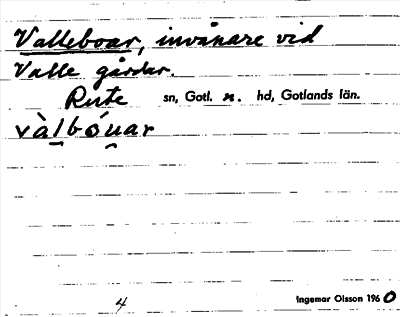 Valleboar, invånare vid
Valle gårdar.
Rute sn, Gotl. n. hd, Gotlands län.
vàlbóuar
4
Ingemar Olsson 1960